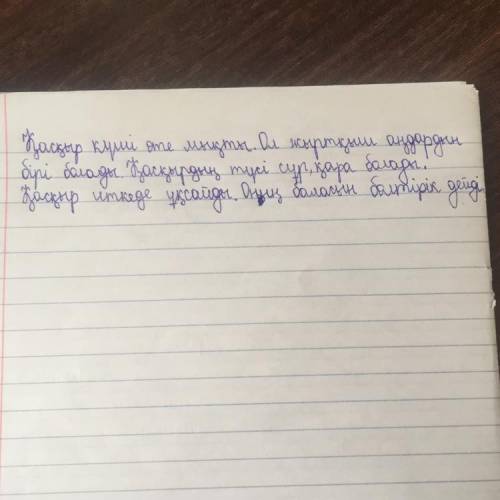 Қасқыр күші өте мықты. Ол жыртқыш аңдардың
бірі болады. Қасқырдың түсі сұр, қара болады.
Қасқыр иткеде ұқсайды. Оның баласын бөлтірік дейді.